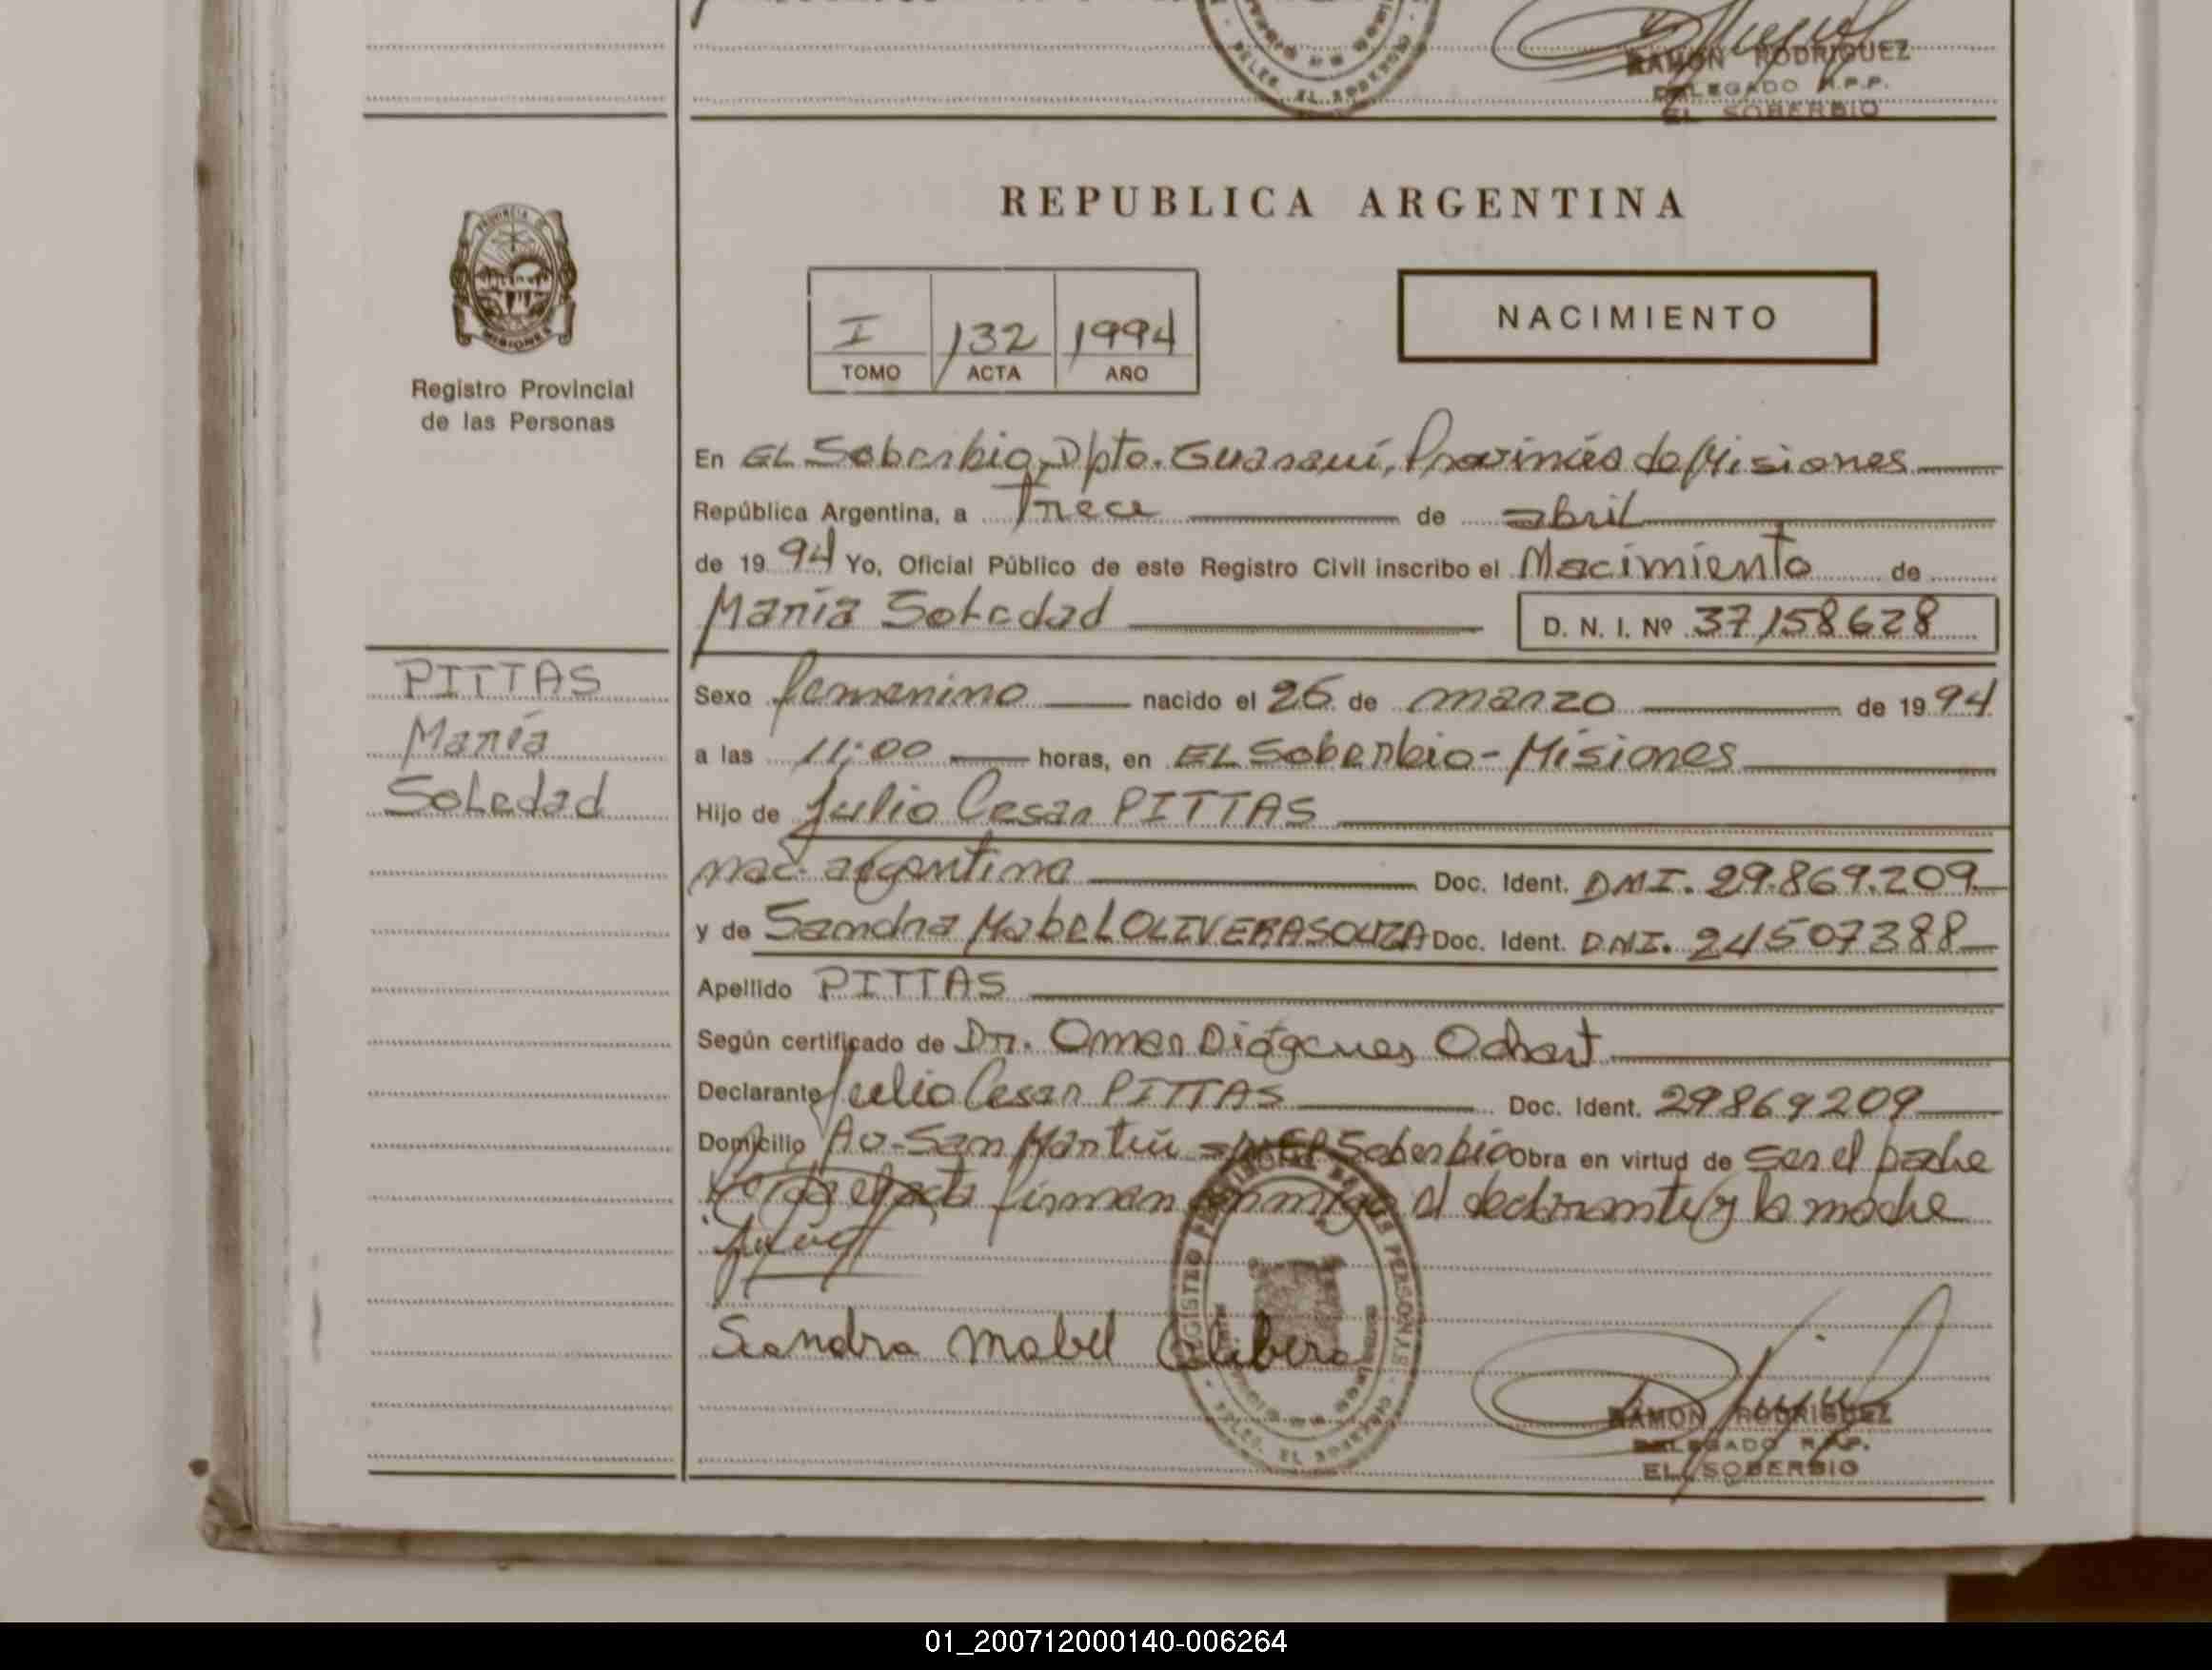 RAMON RODRIGUEZ
DELEGADO R.P.P.
EL SOBERBIO
REPUBLICA ARGENTINA
PROVINCIA DE
MISIONES
Registro Provincial
de las Personas
I 132 1994
TOMO ACTA AÑO
NACIMIENTO
En EL Soberbio, Dpto. Guaraní, Provincia de Misiones
República Argentina, a Trece de abril
de 1994 Yo, Oficial Público de este Registro Civil inscribo el Nacimiento de
María Soledad D. N. I. Nº 37158628
PITTAS
María
Soledad
Sexo femenino nacido el 26 de marzo de 1994
a las 11:00 horas, en EL Soberbio - Misiones
Hijo de Julio Cesar PITTAS
nac. argentina Doc. Ident. DNI. 29.869.209
y de Sandra Mabel OLIVERA SOUZA Doc. Ident. DNI. 24507388
Apellido PITTAS
Según certificado de Dr. Omar Diógenes Odrast
Declarante Julio Cesar PITTAS Doc. Ident. 29869209
Domicilio Av. San Martín El Soberbio Obra en virtud de ser el padre
firman conmigo el declarante y la madre
Sandra Mabel Olibera
RAMON RODRIGUEZ
DELEGADO R.P.P.
EL SOBERBIO
01_200712000140-006264